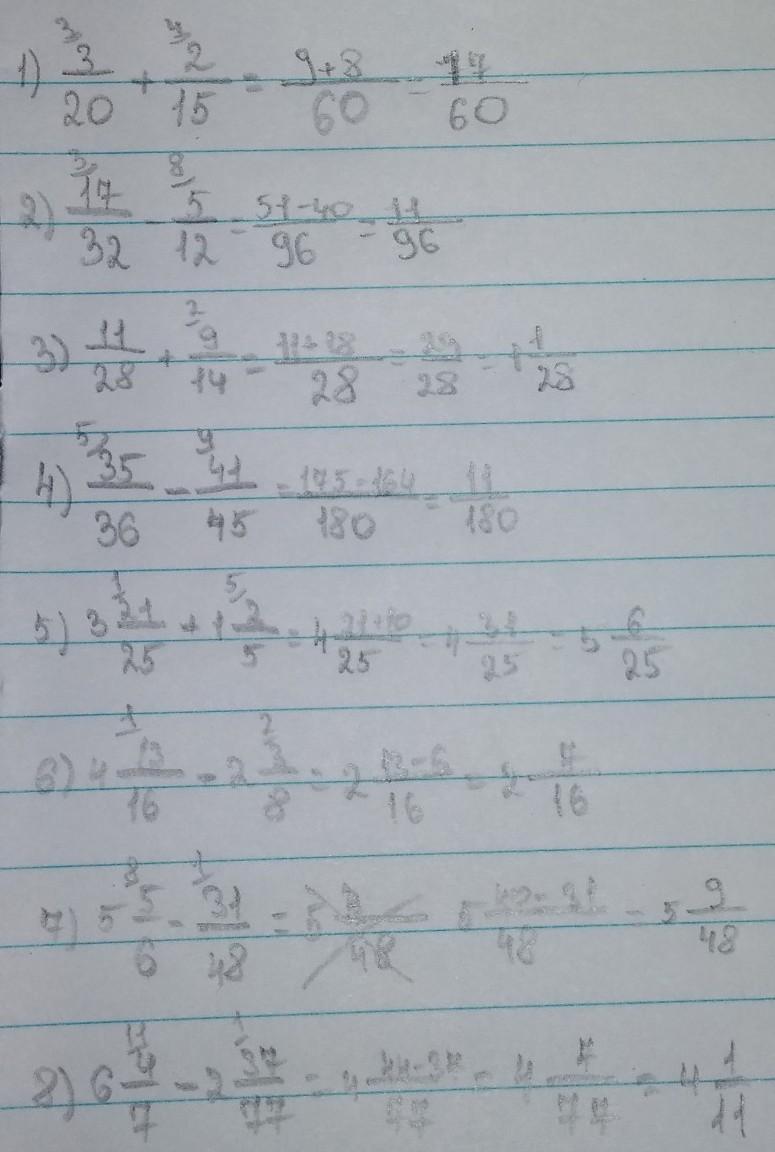 1) ³⁄3/20 + ⁴⁄2/15 = 9+8/60 = 17/60
2) ³⁄17/32 - ⁸⁄5/12 = 51-40/96 = 11/96
3) 11/28 + ²⁄9/14 = 11+18/28 = 29/28 = 1 1/28
4) ⁵⁄35/36 - ⁹⁄41/45 = 175-164/180 = 11/180
5) 3 ¹⁄21/25 + 1 ⁵⁄2/5 = 4 21+10/25 = 4 31/25 = 5 6/25
6) 4 ¹⁄13/16 - 2 ²⁄3/8 = 2 13-6/16 = 2 7/16
7) 5 ⁸⁄5/6 - ¹⁄31/48 = 5 40-31/48 = 5 9/48
8) 6 ¹¹⁄4/7 - 2 ¹⁄37/77 = 4 44-37/77 = 4 7/77 = 4 1/11